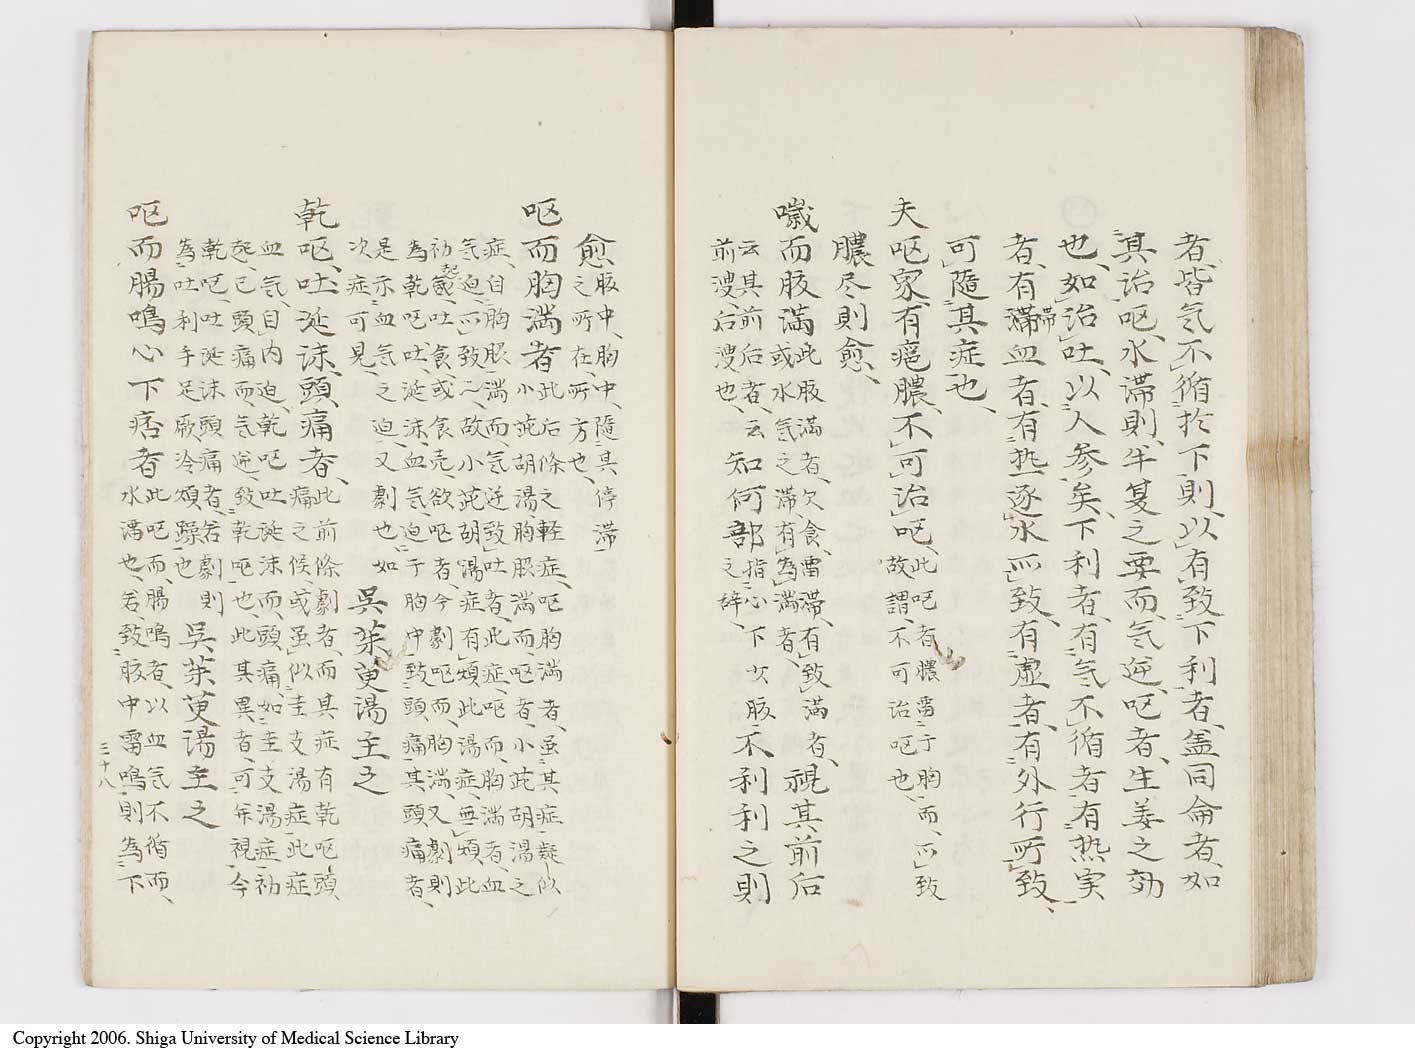 者、皆気不循於下、則以有致下利者、盖同侖者、如
其治呕、水滞則、半夏之要而、気逆、呕者、生姜之効
也、如治吐、以人参矣、下利者、有気不循者有热実
者、有滞血者、有热逐水所致、有虚者、有外行所致、
滞
可随其症也、
夫呕家、有瘧膿、不可治呕、此呕者膿畜于胸而、所致
故謂、不可治呕也、
膿尽則愈、
噦而腹満此腹満者、欠食畜滞、有致満者、視其前后
或水気之滞、有為満者、
云其前后者、云知何部之辞、指心下少腹不利利之則
前溲、后溲也、
愈腹中、胸中、随其、停滞
之所在、所方也、
呕而胸満者此后條之軽症、呕胸満者、虽其症疑似
小茈胡湯、胸脹満而、呕者、小茈胡湯之
症、自胸脹満而、気逆致吐者、此症、呕而、胸満者、血
気迫所致〻、故小茈胡湯症、有煩此湯症、無煩此
初起或吐、食、或食壳、欲呕者、今劇呕而、胸満、又劇則
為乾呕、吐、涎沫、血気、迫于胸中致頭痛其頭痛者、
是示血気之迫、又劇也、如 呉茱萸湯主之
次症可見、
乾呕、吐涎沫、頭痛者、此前條劇者、而其症有乾呕、頭
痛之候、或虽似圭支湯症此症
血気、自内迫、乾呕吐涎沫而、頭痛如圭支湯症初
起、已頭痛而、気逆、致乾呕也、此其異者、可并視今
乾呕、吐涎沫頭痛者、若劇則
為吐利手足厥冷煩躁也 呉茱萸湯主之
呕而腸鳴心下痞者此呕而、腸鳴者、以血気不循而、
水滞也、若、致腹中雷鳴則為下、
三十八
Copyright 2006. Shiga University of Medical Science Library